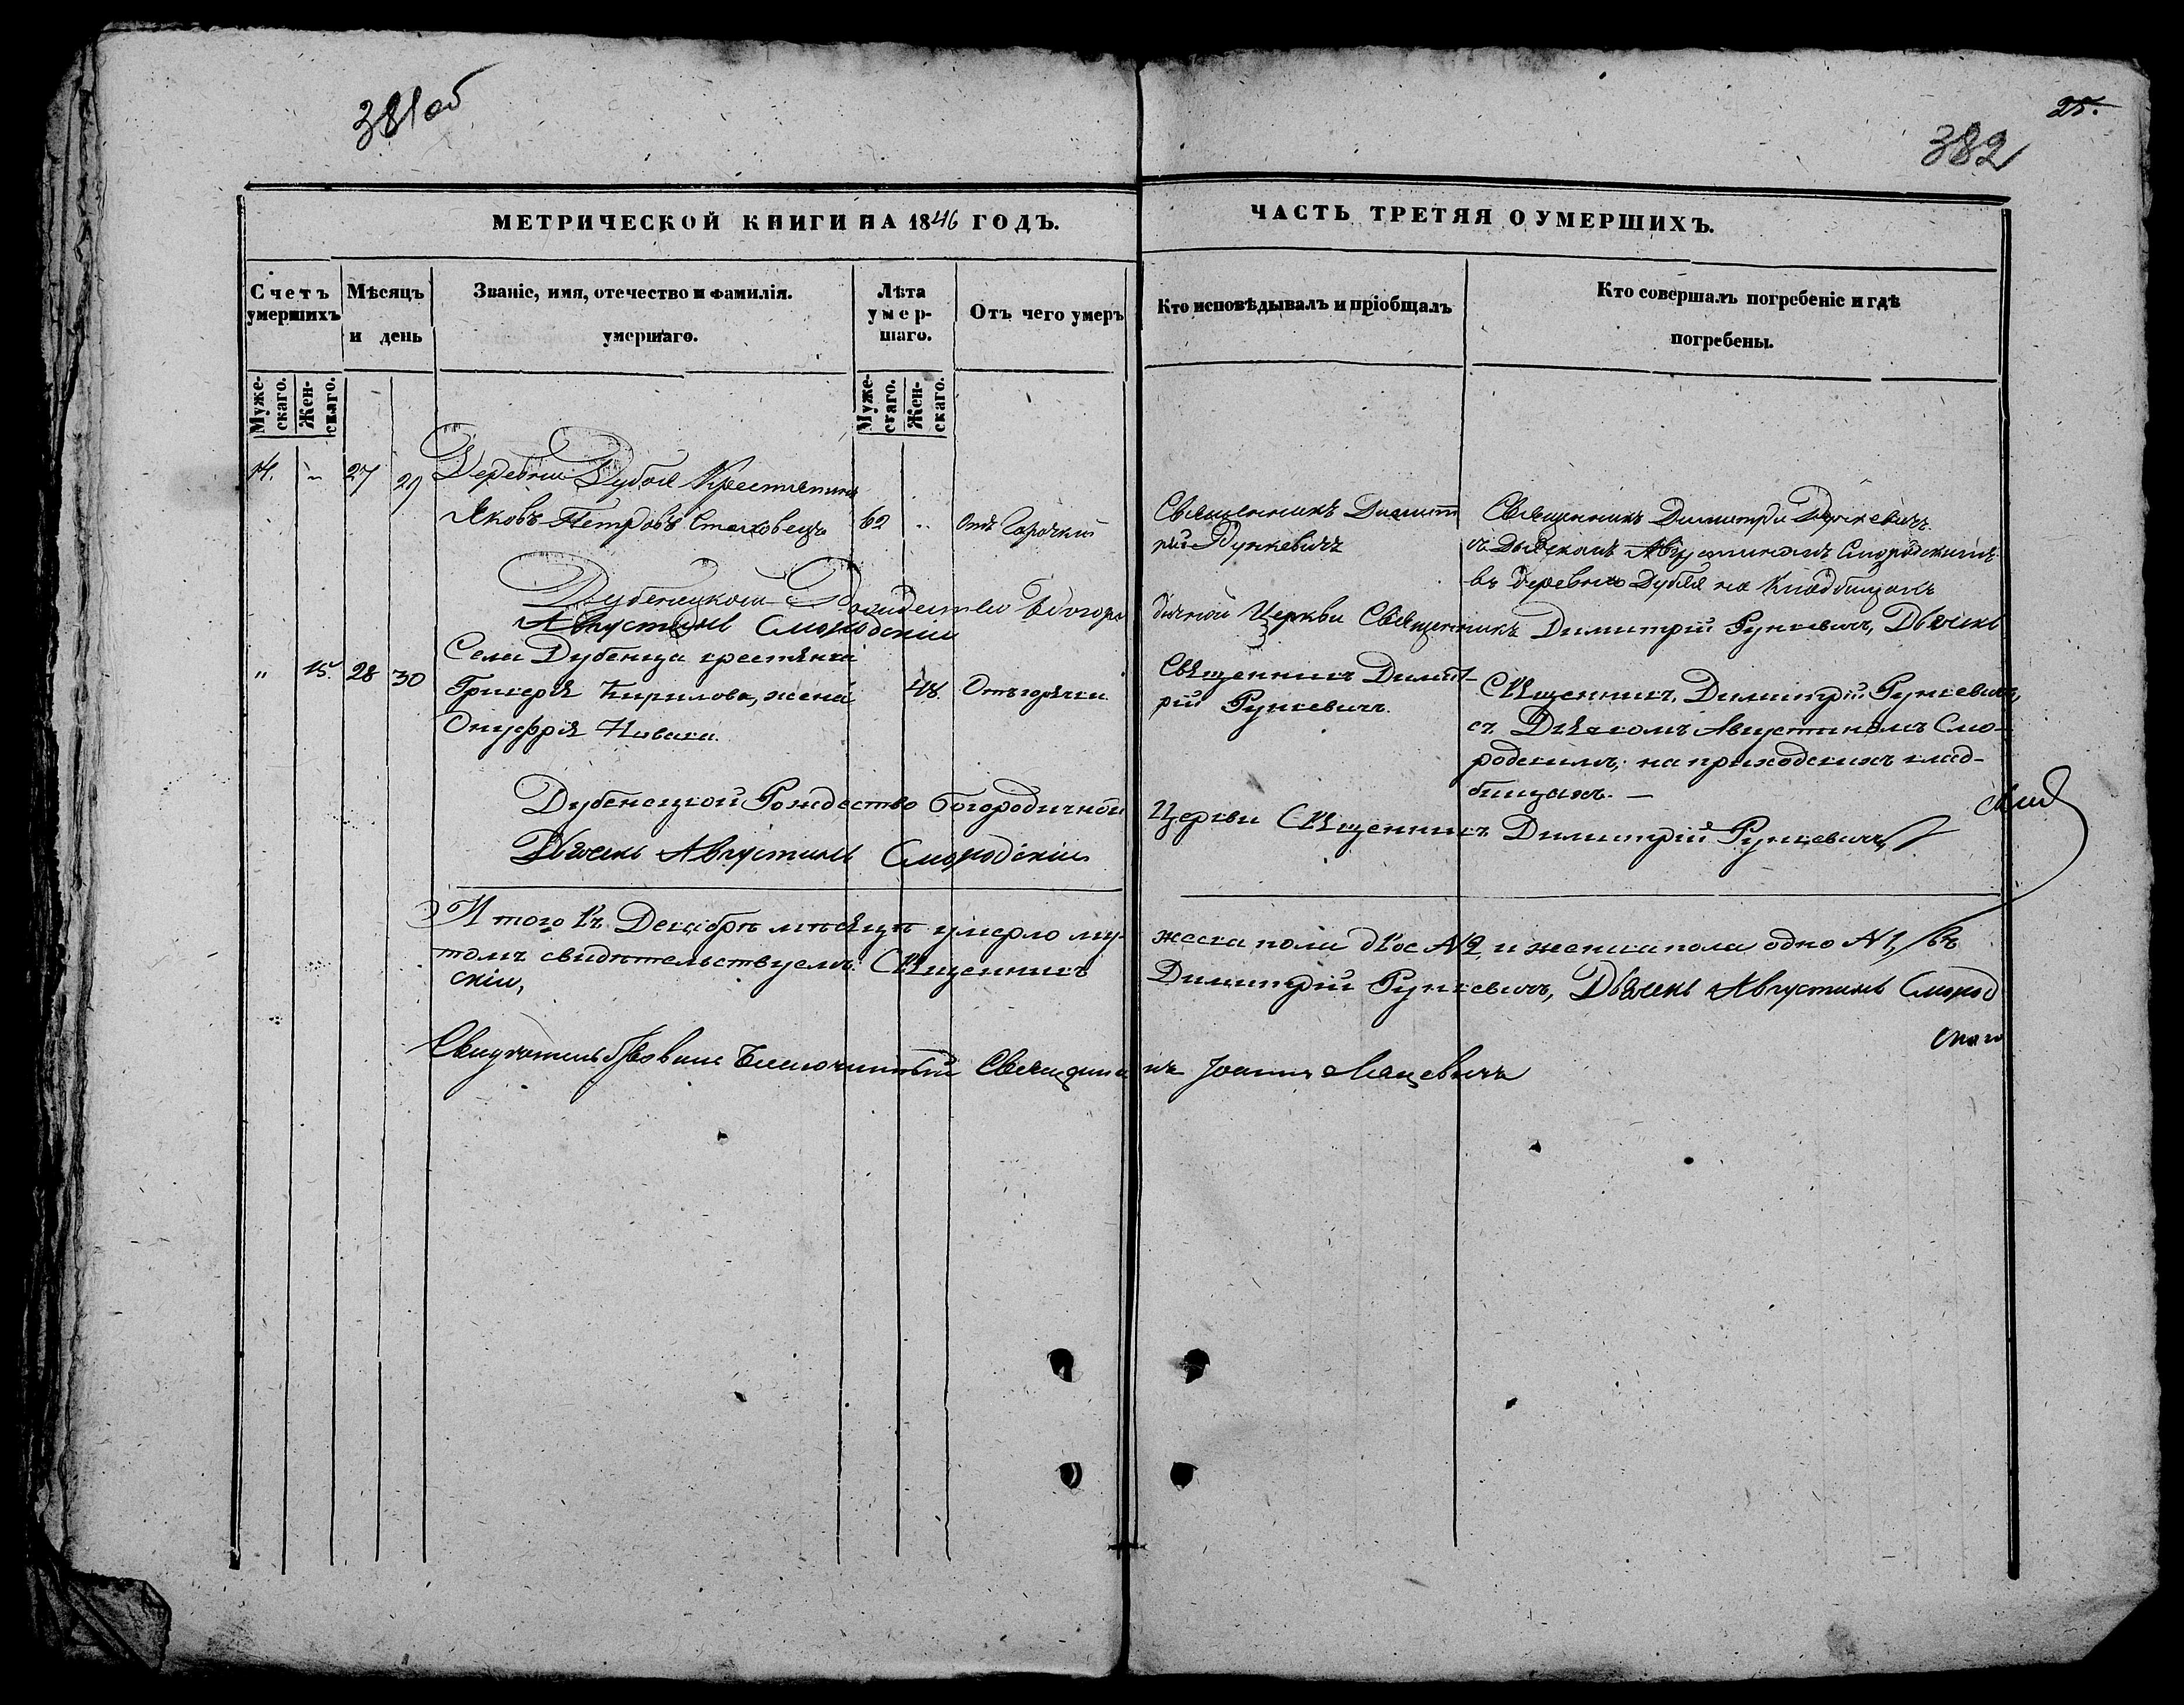 381об
25.
382
МЕТРИЧЕСКОЙ КНИГИ НА 1846 ГОДЪ.
ЧАСТЬ ТРЕТЯЯ О УМЕРШИХЪ.
Счетъ умершихъ
Мѣсяцъ и день
Званіе, имя, отечество и фамилія.
умершаго.
Лѣта умер-
шаго.
Отъ чего умеръ
Кто исповѣдывалъ и пріобщалъ
Кто совершалъ погребеніе и гдѣ
погребены.
Муже-
скаго.
Жен-
скаго.
Муже-
скаго.
Жен-
скаго.
14. „ 27 29
Деревни Дубоя Крестянинъ
Яковъ Петровъ Стаховецъ
62 „
Отъ Горячки
Священникъ Димит
рій Рункевичъ
Священникъ Димитрій Рункевичъ
съ Дьячкомъ Августиномъ Смородскимъ
въ деревни Дубоя на Кладбищахъ
Дубенецкой Рождество Богоро
дичной Церкви Священникъ Димитрій Рункевичъ, Дьячекъ
Августинъ Смородскій
„ 15. 28 30
Села Дубенца крестянка
Гликерія Кирилова, жена
Онуфрія Новака.
48.
Отъ горячки
Священникъ Димит-
рій Рункевичъ.
Священникъ Димитрій Рункевичъ,
съ Дьячкомъ Августиномъ Смо-
родскимъ, на приходскихъ клад-
бищахъ. —
Дубенецкой Рождество Богородичной Церкви Священникъ Димитрій Рункевичъ
Дьячекъ Августинъ Смородскій
Итого въ Декабрѣ мѣсяцѣ умерло му-
жеска пола двое №2, и женска пола одно №1, въ
томъ свидѣтельствуемъ: Священникъ
Димитрій Рункевичъ, Дьячекъ Августинъ Смород
скій,
Благочинный Священникъ Іоаннъ Мацевичъ